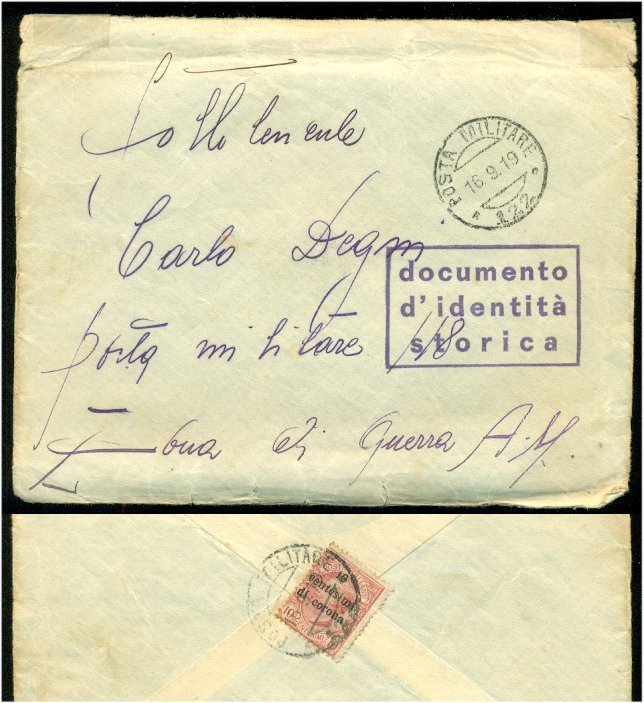 Sottotenente
Carlo Degni
posta militare 118
Zona di Guerra A.M.
POSTA MILITARE
16.9.19
* 122 *
documento
d'identità
storica
MILITARE
10 centesimi
di corona